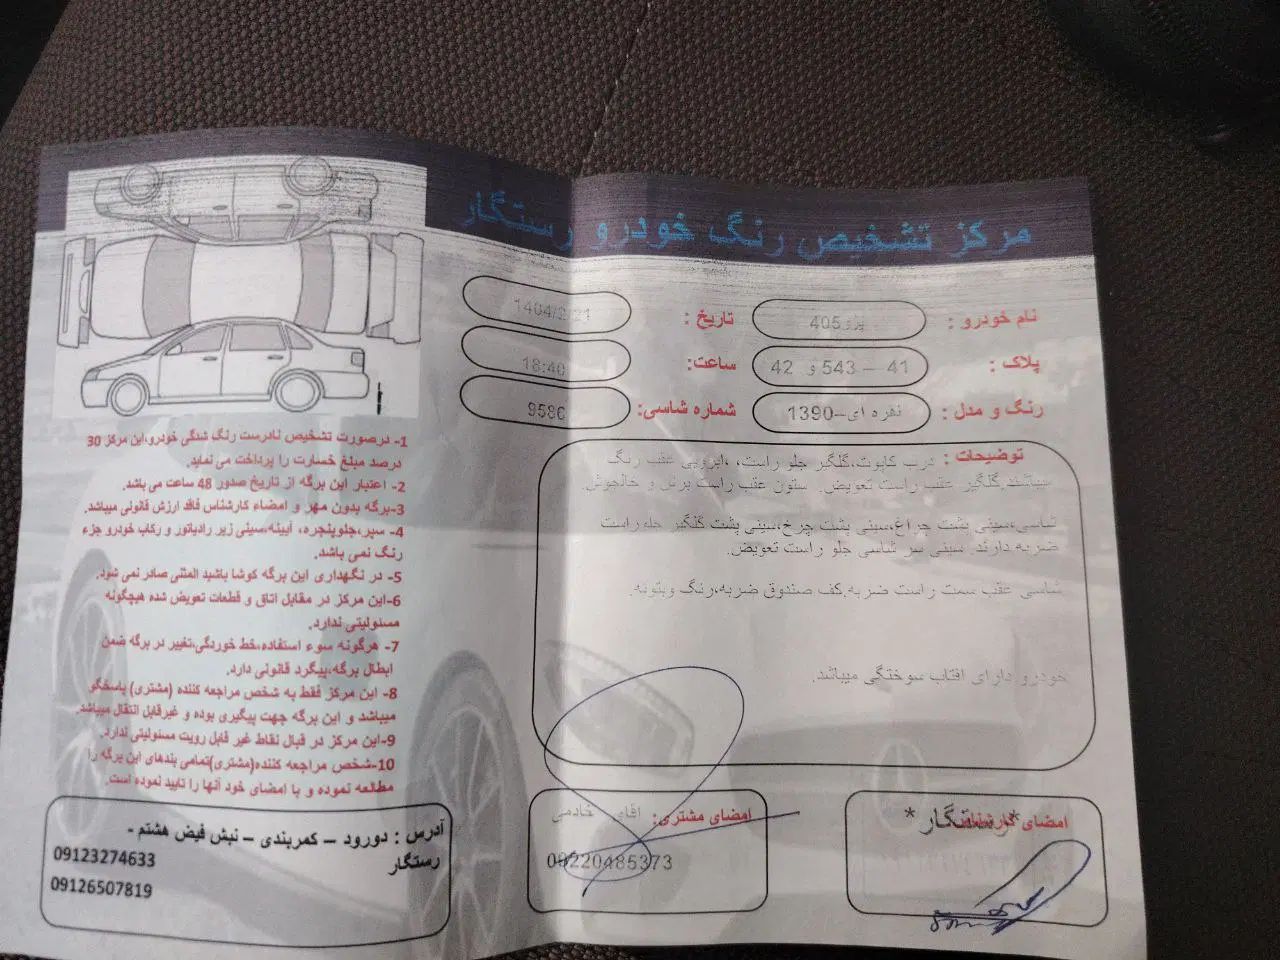 مرکز تشخیص رنگ خودرو رستگار
نام خودرو : پژو405
تاریخ : 1404/2/21
پلاک : 41 – 543 و 42
ساعت: 18:40
رنگ و مدل : نقره ای–1390
شماره شاسی: 9586
توضیحات : درب کاپوت،گلگیر جلو راست، ،ابرویی عقب رنگ
میباشد.گلگیر عقب راست تعویض. ستون عقب راست برش و خالجوش.
شاسی،سینی پشت چراغ،سینی پشت چرخ،سینی پشت گلگیر جلو راست
ضربه دارند. سینی سر شاسی جلو راست تعویض.
شاسی عقب سمت راست ضربه.کف صندوق ضربه،رنگ وبتونه.
خودرو دارای افتاب سوختگی میباشد.
1- درصورت تشخیص نادرست رنگ شدگی خودرو،این مرکز 30
درصد مبلغ خسارت را پرداخت می نماید.
2- اعتبار این برگه از تاریخ صدور 48 ساعت می باشد.
3-برگه بدون مهر و امضاء کارشناس فاقد ارزش قانونی میباشد.
4- سپر،جلو پنجره، آیینه،سینی زیر رادیاتور و رکاب خودرو جزء
رنگ نمی باشد.
5- در نگهداری این برگه کوشا باشید المثنی صادر نمی شود.
6-این مرکز در مقابل اتاق و قطعات تعویض شده هیچگونه
مسئولیتی ندارد.
7- هرگونه سوء استفاده،خط خوردگی،تغییر در برگه ضمن
ابطال برگه،پیگرد قانونی دارد.
8- این مرکز فقط به شخص مراجعه کننده (مشتری) پاسخگو
میباشد و این برگه جهت پیگیری بوده و غیرقابل انتقال میباشد.
9-این مرکز در قبال نقاط غیر قابل رویت مسئولیتی ندارد.
10-شخص مراجعه کننده(مشتری)تمامی بندهای این برگه را
مطالعه نموده و با امضای خود آنها را تایید نموده است.
امضای کارشناس: *رستگار*
امضای مشتری: اقای خادمی
09220485373
آدرس : دورود – کمربندی – نبش فیض هشتم -
رستگار
09123274633
09126507819